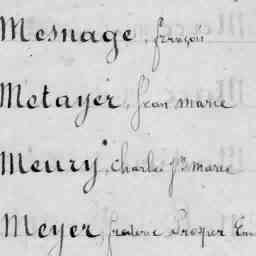 Mesnage, françois
Metayer, Jean marie
Meury, Charles fs marie
Meyer, frederic Prosper Em